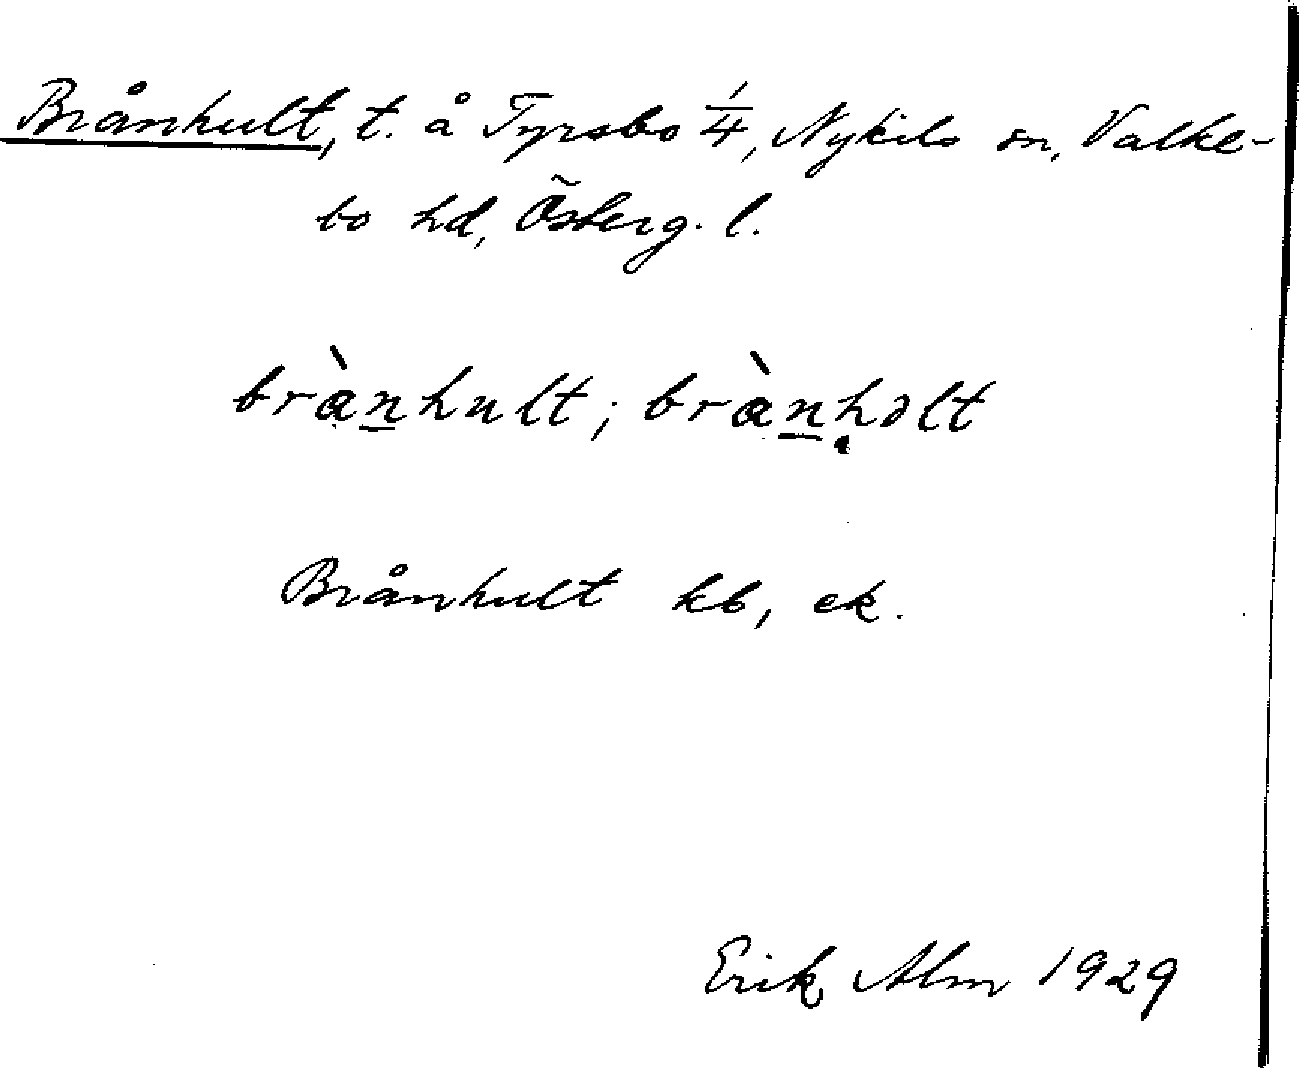 Brånhult, t. å Tyrsbo 1/4, Nykils sn, Valke-
bo hd, Österg. l.
brànhult; brànhɔlt
Brånhult kb, ek.
Erik Alm 1929